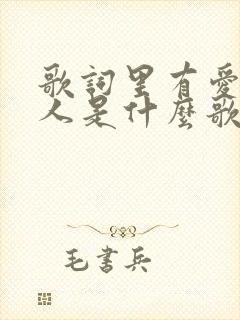 歌詞里有愛
人是什麼歌
毛書兵